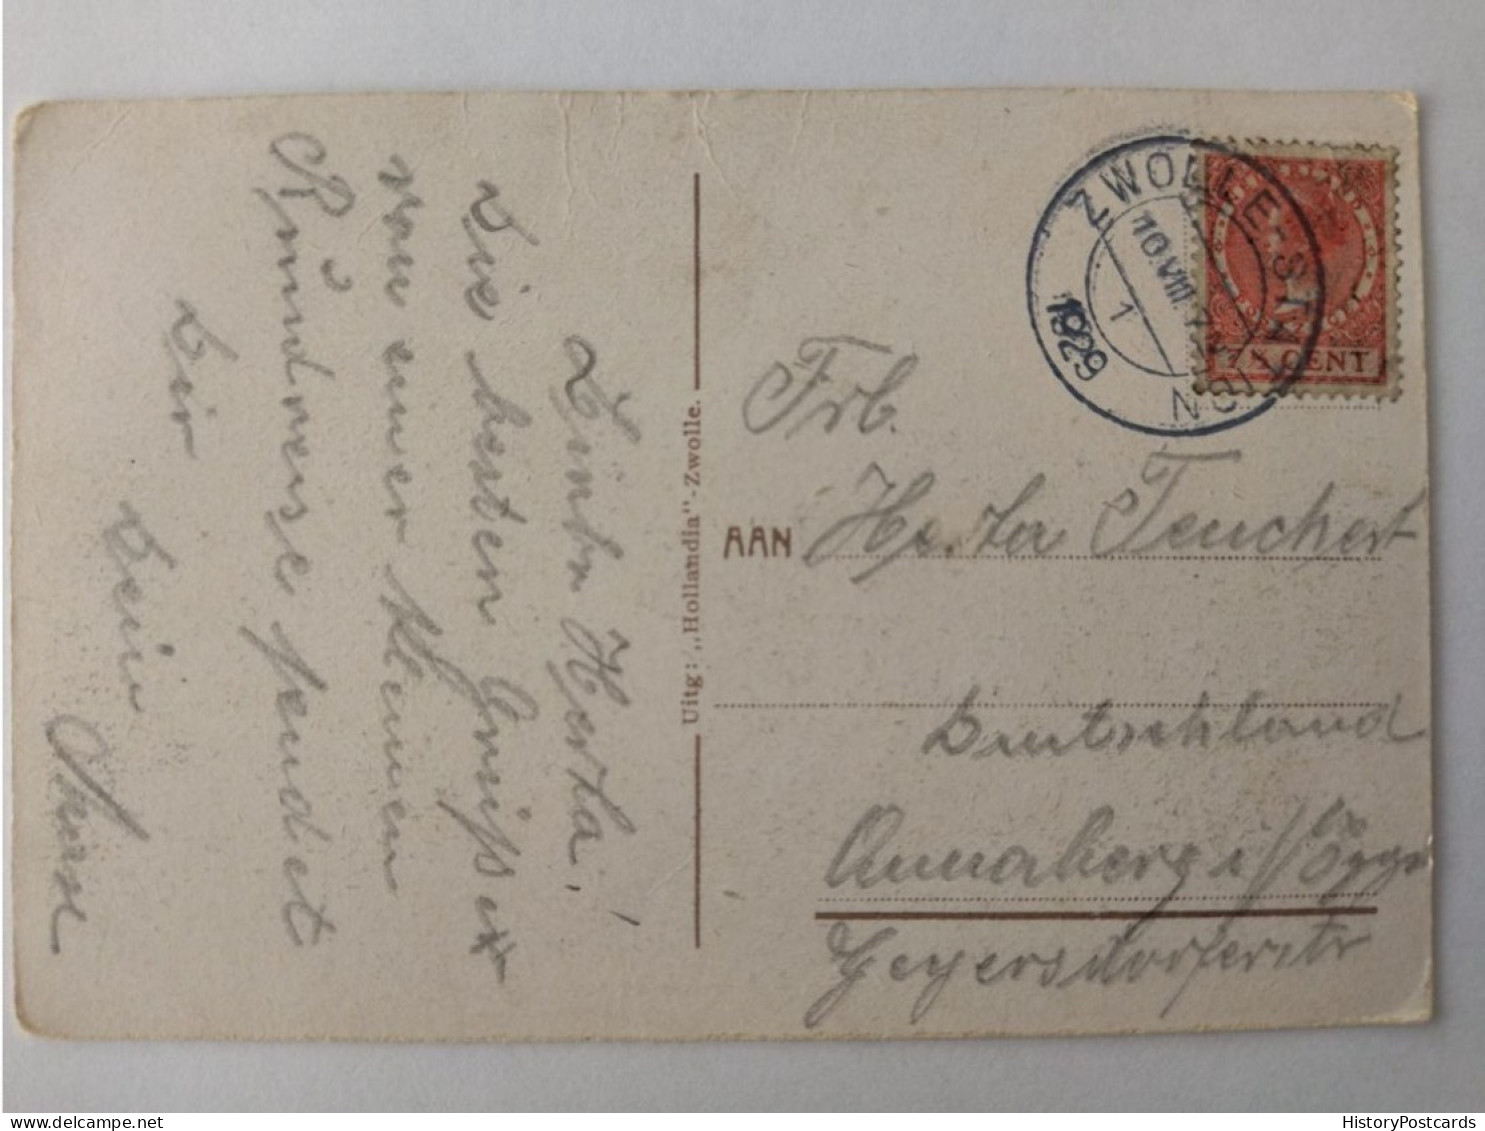 Liebe Herta!
Die besten Grüsse
von einer kleinen
Rundreise sendet
Dir
Dein
Uitg: „Hollandia"-Zwolle.
ZWOLLE-STATION
10.VIII
1929
1
7½ CENT
Frl.
AAN Herta Teuchert
Deutschland
Annaberg i/Erzg.
Geyersdorferstr
HistoryPostcards
delcampe.net